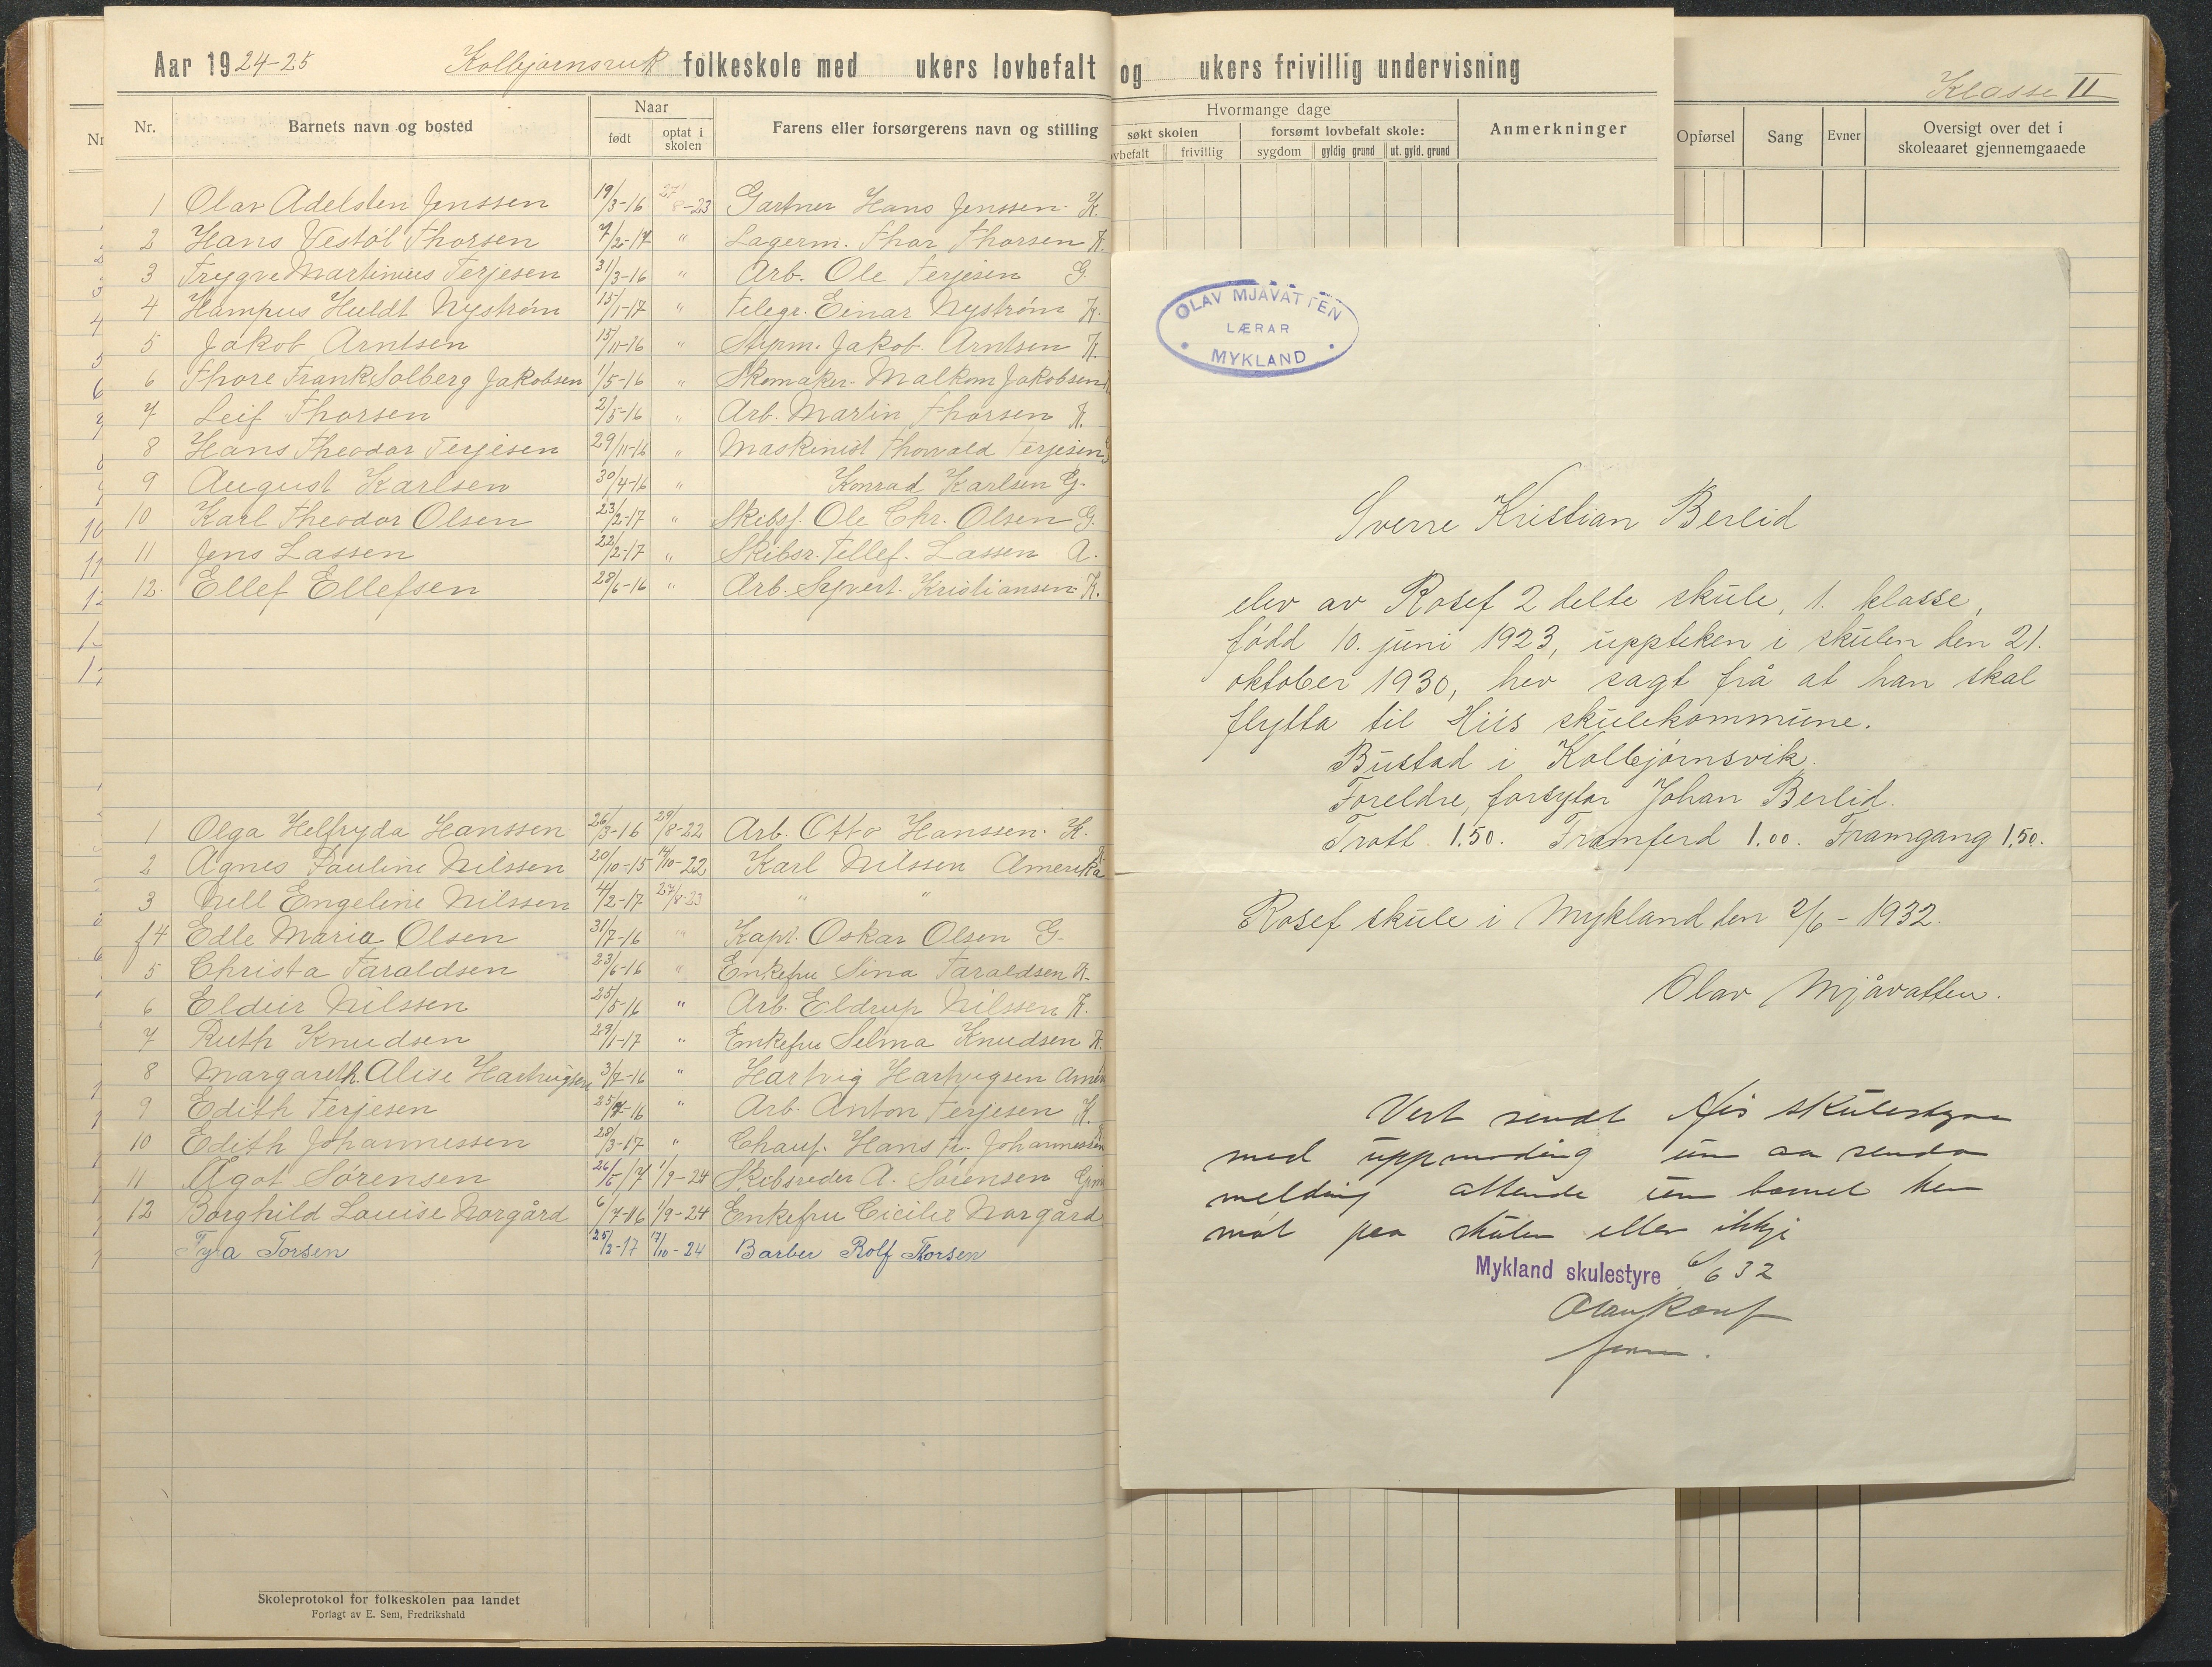 Aar 1924-25 Kolbjørnsvik folkeskole med ukers lovbefalt og ukers frivillig undervisning
Klasse II
Nr. Barnets navn og bosted Naar født optat i skolen Farens eller forsørgerens navn og stilling
Hvormange dage søkt skolen forsømt lovbefalt skole: Anmerkninger
ovbefalt frivillig sygdom gyldig grund ut. gyld. grund
Opførsel Sang Evner Oversigt over det i skoleaaret gjennemgaaede
1 Olav Adelsten Jenssen 19/3-16 27/8-23 Gartner Hans Jenssen K.
2 Hans Vestøl Thorsen 7/2-17 " Lagerm. Thor Thorsen K.
3 Trygve Martinius Terjesen 31/3-16 " Arb. Ole Terjesen G.
4 Hampus Huldt Nystrøm 15/1-17 " Telegr. Einar Nystrøm K.
5 Jakob Arntsen 15/11-16 " Styrm. Jakob Arntsen K.
6 Thore Frank Solberg Jakobsen 1/5-16 " Skomaker Malkom Jakobsen
7 Leif Thorsen 2/5-16 " Arb. Martin Thorsen K.
8 Hans Theodor Terjesen 29/11-16 " Maskinist Thorvald Terjesen
9 August Karlsen 30/4-16 " Konrad Karlsen G.
10 Karl Theodor Olsen 23/2-17 " Skibsf. Ole Chr. Olsen G.
11 Jens Lassen 22/2-17 " Skibsr. Tellef Lassen A.
12. Ellef Ellefsen 28/6-16 " Arb. Syvert Kristiansen K.
1 Olga Helfryda Hanssen 26/3-16 29/8-22 Arb. Otto Hanssen K.
2 Agnes Pauline Nilssen 20/10-15 14/10-22 Karl Nilssen Amerika
3 Nell Engeline Nilssen 4/2-17 27/8-23 " "
4 Edle Maria Olsen 31/7-16 " Kapt. Oskar Olsen G.
5 Christa Taraldsen 23/6-16 " Enkefru Sina Taraldsen K.
6 Eldur Nilssen 25/5-16 " Arb. Eldrup Nilssen K.
7 Ruth Knudsen 29/1-17 " Enkefru Selma Knudsen K.
8 Margareth Alise Hartvigsen 3/7-16 " Hartvig Hartvigsen Amer
9 Edith Terjesen 25/7-16 " Arb. Anton Terjesen K.
10 Edith Johannessen 28/3-17 " Chauf. Hans Fr. Johannessen
11 Agot Sørensen 26/5/17 1/9-24 Skibsreder A. Sørensen
12 Borghild Louise Norgård 6/7-16 1/9-24 Enkefru Cicilie Norgård
Fyra Torsen 25/2-17 17/10-24 Barber Rolf Thorsen
Skoleprotokol for folkeskolen paa landet
Forlagt av E. Sem, Fredrikshald
OLAV MJÅVATTEN
LÆRAR
MYKLAND
Sverre Kristian Berlid
elev av Rosef 2 delte skule, 1. klasse,
fødd 10. juni 1923, uppteken i skulen den 21.
oktober 1930, hev sagt frå at han skal
flytta til Hiis skulekommune.
Bustad i Kolbjørnsvik.
Foreldre, forsytar Johan Berlid.
Trott 1.50. Framferd 1.00. Framgang 1,50.
Rosef skule i Mykland den 2/6 - 1932.
Olav Mjåvatten.
Vert sendt His skulestyre
med uppmoding um aa senda
melding attende um barnet hev
møt paa skulen eller ikkje
Mykland skulestyre 6/6 32